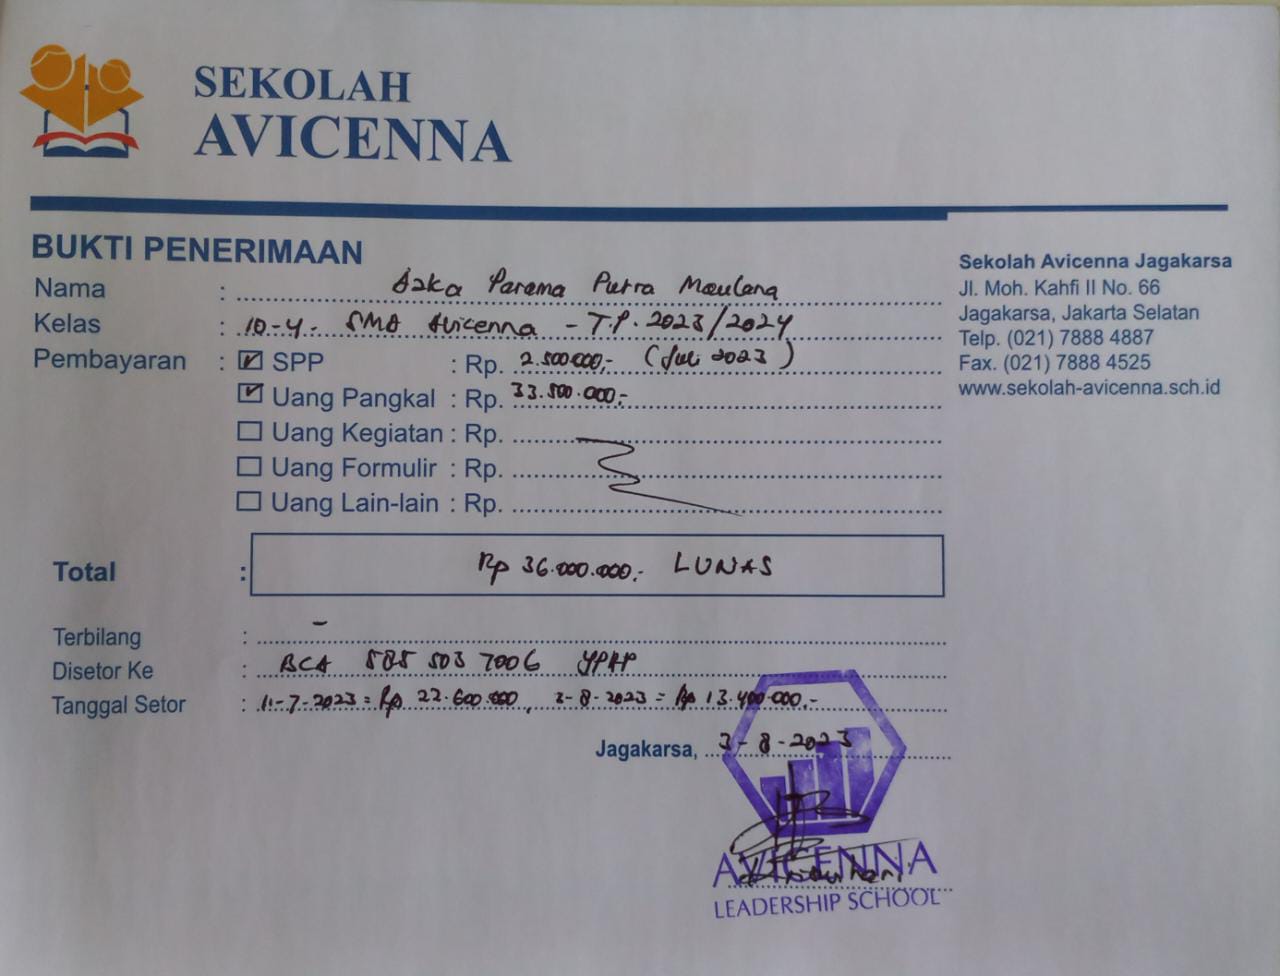 SEKOLAH
AVICENNA
BUKTI PENERIMAAN
Nama : Azka Parama Putra Maulana
Kelas : 10-4- SMA Avicenna - T.P. 2023/2024
Pembayaran : SPP : Rp. 2.500.000,- (Juli 2023)
Uang Pangkal : Rp. 33.500.000,-
Uang Kegiatan : Rp.
Uang Formulir : Rp.
Uang Lain-lain : Rp.
Total : Rp 36.000.000,- LUNAS
Terbilang : -
Disetor Ke : BCA 585 503 7006 YPAP
Tanggal Setor : 11-7-2023 = Rp 22.600.000, 3-8-2023 = Rp 13.400.000,-
Jagakarsa, 3-8-2023
AVICENNA
LEADERSHIP SCHOOL
Sekolah Avicenna Jagakarsa
Jl. Moh. Kahfi II No. 66
Jagakarsa, Jakarta Selatan
Telp. (021) 7888 4887
Fax. (021) 7888 4525
www.sekolah-avicenna.sch.id